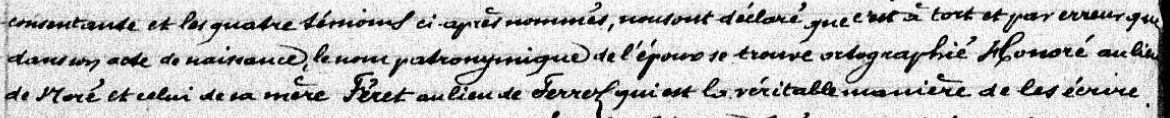 consentante et les quatre témoins ci-après nommés, nous ont déclaré que c'est à tort et par erreur que
dans son acte de naissance, le nom patronymique de l'époux se trouve ortographié Honoré au lieu
de Noré et celui de sa mère Féret au lieu de Ferrez qui est la véritable manière de les écrire.